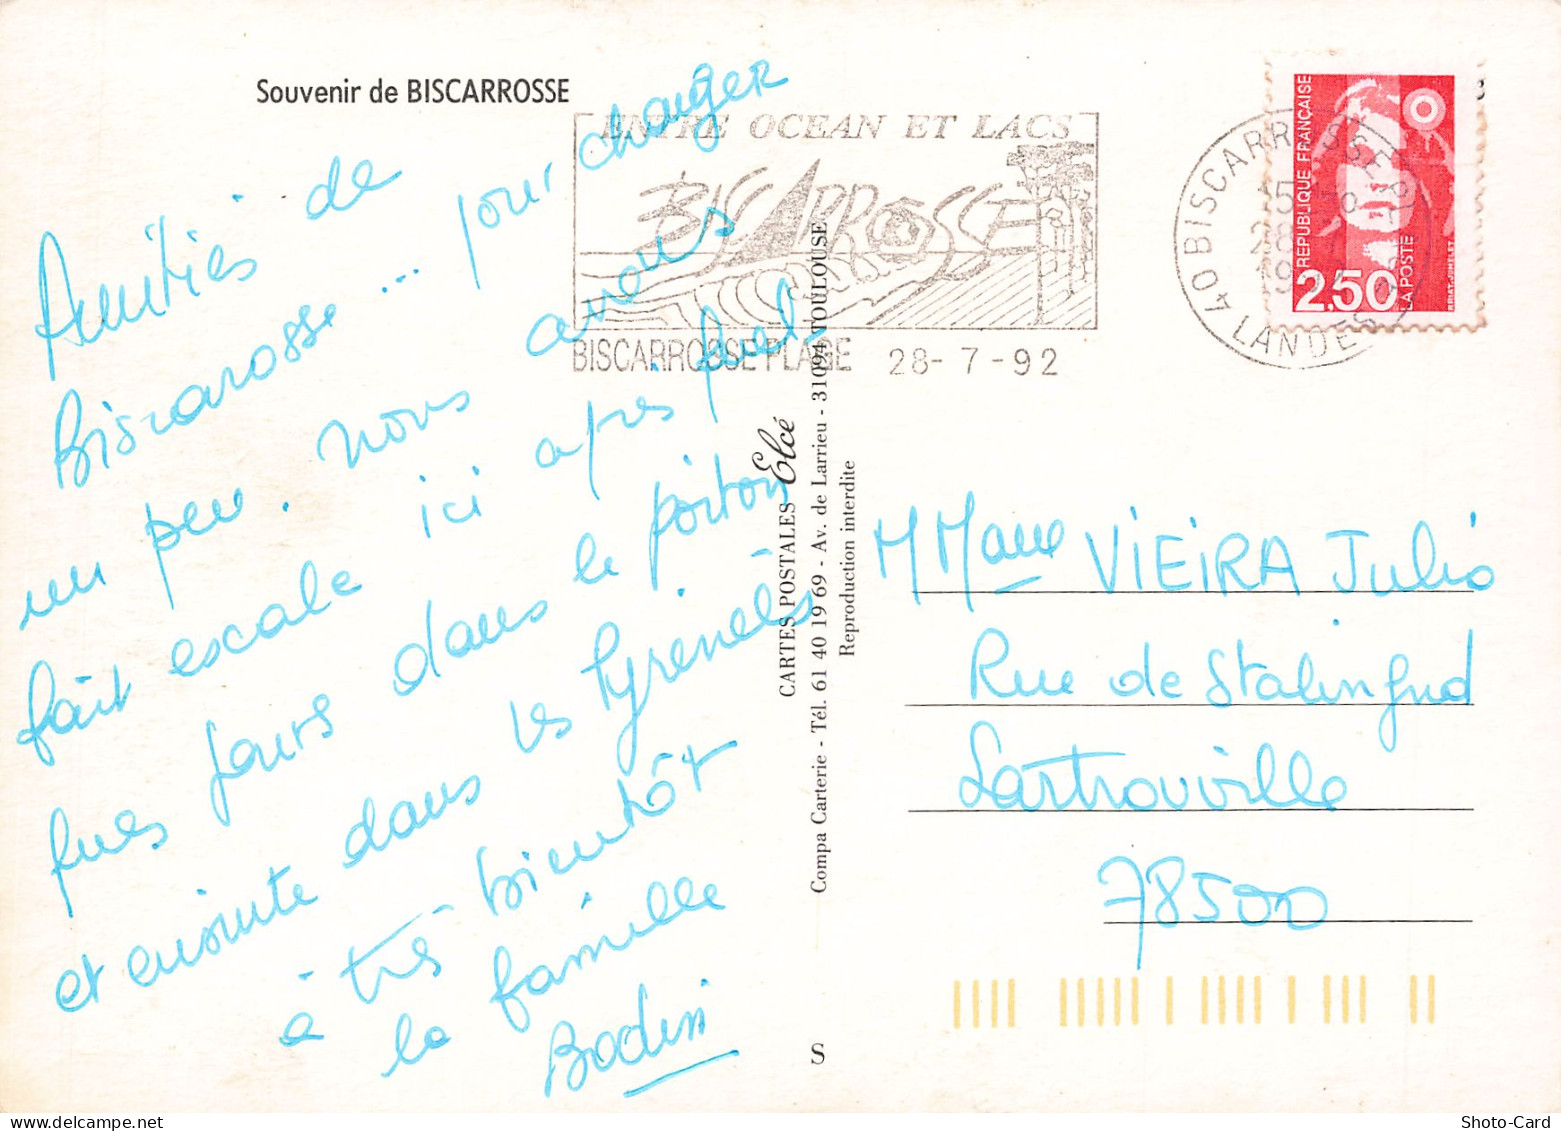 Souvenir de BISCARROSSE
Amitiés de
Biscarosse... pour changer
un peu. nous avons
fait escale ici après quel-
ques jours dans le poitou
et ensuite dans les Pyrénées
à très bientôt
la famille
Bodin
ENTRE OCEAN ET LACS
BISCARROSSE
BISCARROSSE PLAGE 28-7-92
40 BISCARROSSE
LANDES
REPUBLIQUE FRANÇAISE
2,50
LA POSTE
CARTES POSTALES Elcé
Compa Carterie - Tél. 61 40 19 69 - Av. de Larrieu - 31094 TOULOUSE
Reproduction interdite
S
M Mame VIEIRA Julio
Rue de Stalingrad
Sartrouville
78500
Shoto-Card